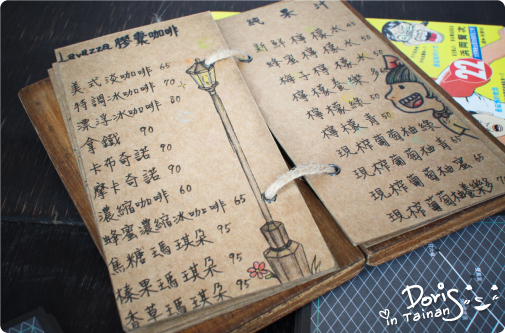 Lavazza 膠囊咖啡
美式淡咖啡 65
特調冰咖啡 70
漂浮冰咖啡 80
拿鐵 90
卡布奇諾 90
摩卡奇諾 90
濃縮咖啡 60
蜂蜜濃縮冰咖啡 65
焦糖瑪琪朵 95
榛果瑪琪朵 95
香草瑪琪朵 95
純果汁
新鮮檸檬汁
蜂蜜檸檬汁
梅子檸檬
檸檬多
檸檬綠
檸檬青
現榨葡萄柚綠 60
現榨葡萄柚青 60
現榨葡萄柚蜜 65
現榨葡萄柚優多 70
22
Doris
in Tainan